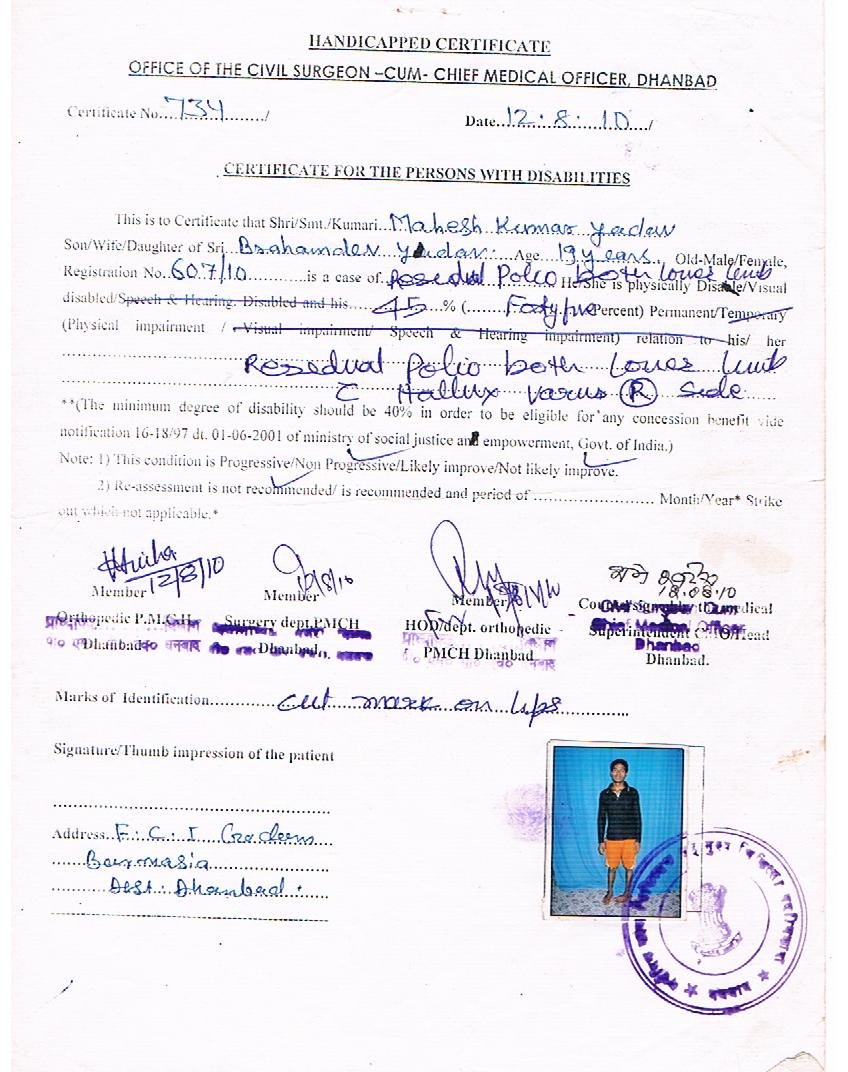 HANDICAPPED CERTIFICATE
OFFICE OF THE CIVIL SURGEON –CUM- CHIEF MEDICAL OFFICER, DHANBAD
Certificate No....734............/
Date..12.8.10../
CERTIFICATE FOR THE PERSONS WITH DISABILITIES
This is to Certificate that Shri/Smt./Kumari...Mahesh Kumar Yadav
Son/Wife/Daughter of Sri...Brahamdev Yadav. Age...19 years.. Old-Male/Female,
Registration No.607/10............is a case of.Resedual Polio both Lower limb He/She is physically Disable/Visual
disabled/Speech & Hearing. Disabled and his....45...% (.......Percent) Permanent/Temporary
(Physical impairment / Visual impairment/ Speech & Hearing impairment) relation to his/ her
Resedual Polio both Lower limb
C Hallux varus R side
**(The minimum degree of disability should be 40% in order to be eligible for any concession benefit vide
notification 16-18/97 dt. 01-06-2001 of ministry of social justice and empowerment, Govt. of India.)
Note: 1) This condition is Progressive/Non Progressive/Likely improve/Not likely improve.
2) Re-assessment is not recommended/ is recommended and period of ........................ Month/Year* Strike
out which not applicable.*
12/8/10
18.08.10
Member Member Member Countersigned by the Medical
Orthopedic P.M.C.H. Surgery dept.PMCH HOD/dept. orthopedic Superintendent C.M.O/Head
Dhanbad Dhanbad. PMCH Dhanbad Dhanbad.
Civil Surgeon Cum
Chief Medical Officer
Dhanbad
Marks of Identification..............cut mark on lips
Signature/Thumb impression of the patient
Address..F.C.I Godown
Barmasia
Dist. Dhanbad.